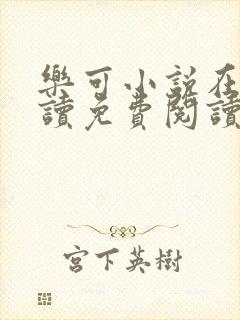 樂可小說在
讀免費閱讀
宮下英樹